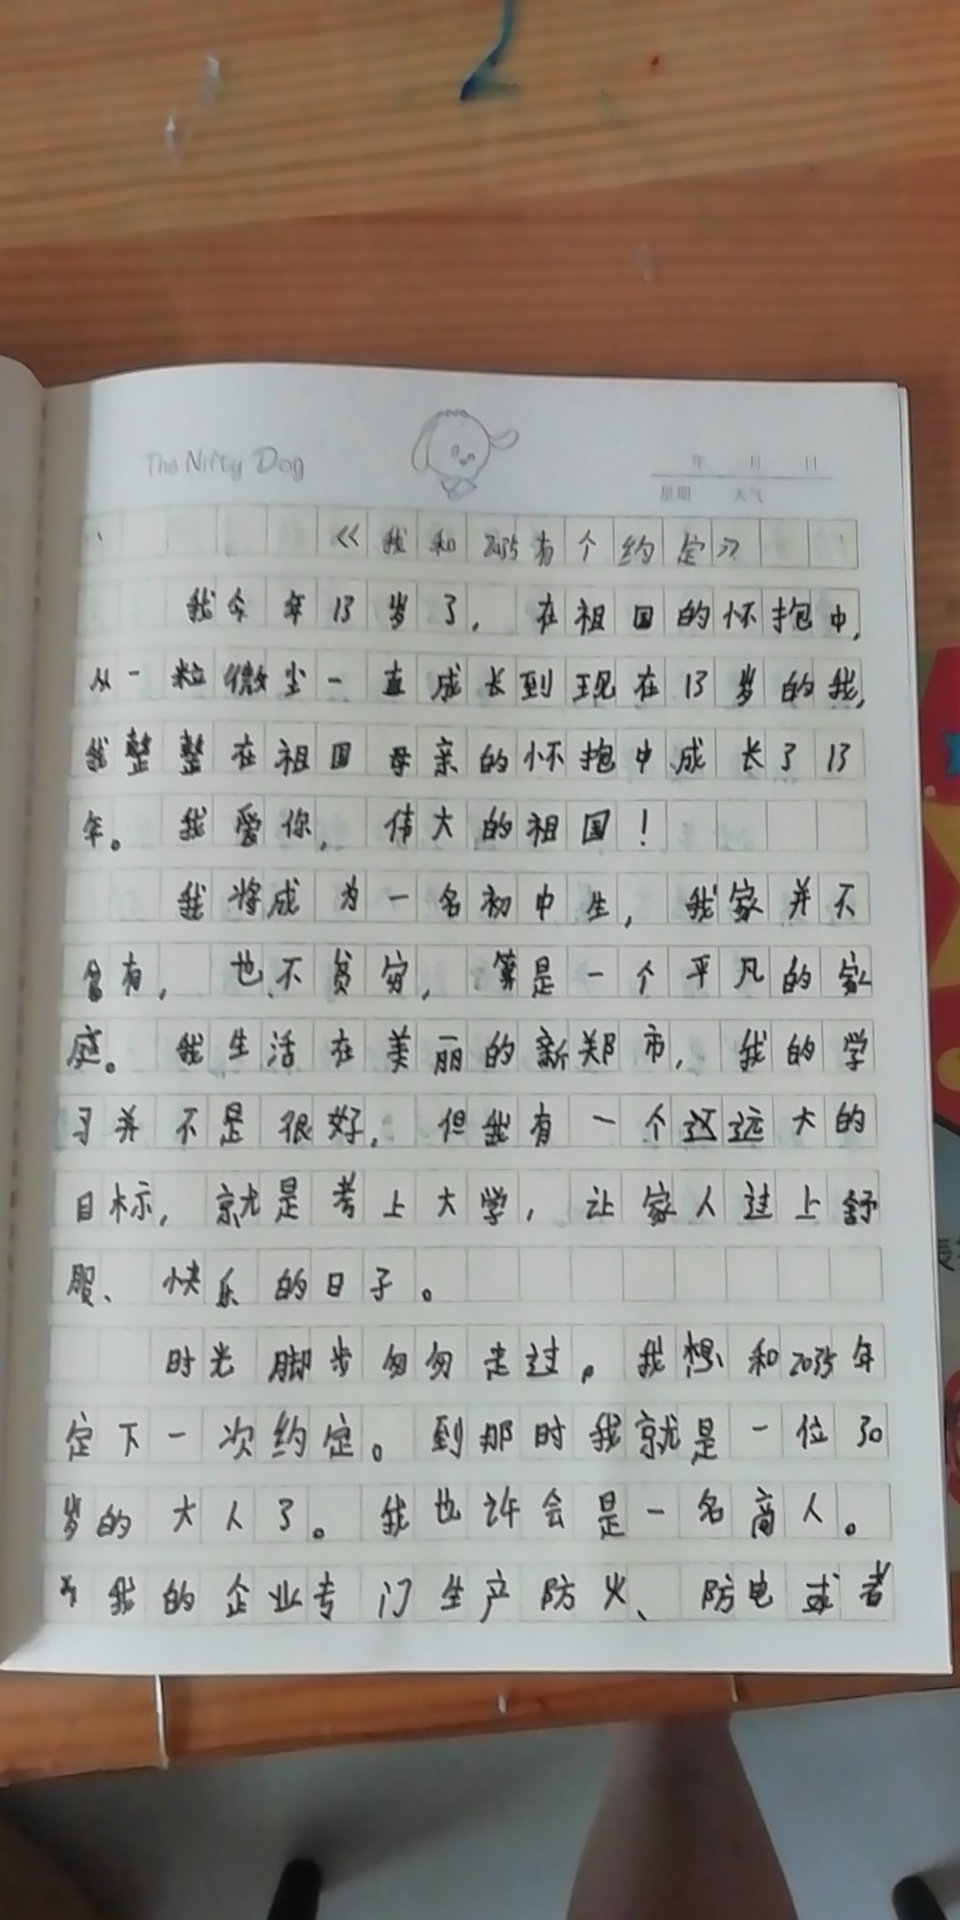 The Nifty Dog
年 月 日
星期 天气
《我和2035有个约定》
我今年13岁了，在祖国的怀抱中，
从一粒微尘一直成长到现在13岁的我，
我整整在祖国母亲的怀抱中成长了13
年。我爱你，伟大的祖国！
我将成为一名初中生，我家并不
富有，也不贫穷，算是一个平凡的家
庭。我生活在美丽的新郑市，我的学
习并不是很好，但我有一个这远大的
目标，就是考上大学，让家人过上舒
服、快乐的日子。
时光脚步匆匆走过。我想和2035年
定下一次约定。到那时我就是一位30
岁的大人了。我也许会是一名商人。
我的企业专门生产防火、防电或者